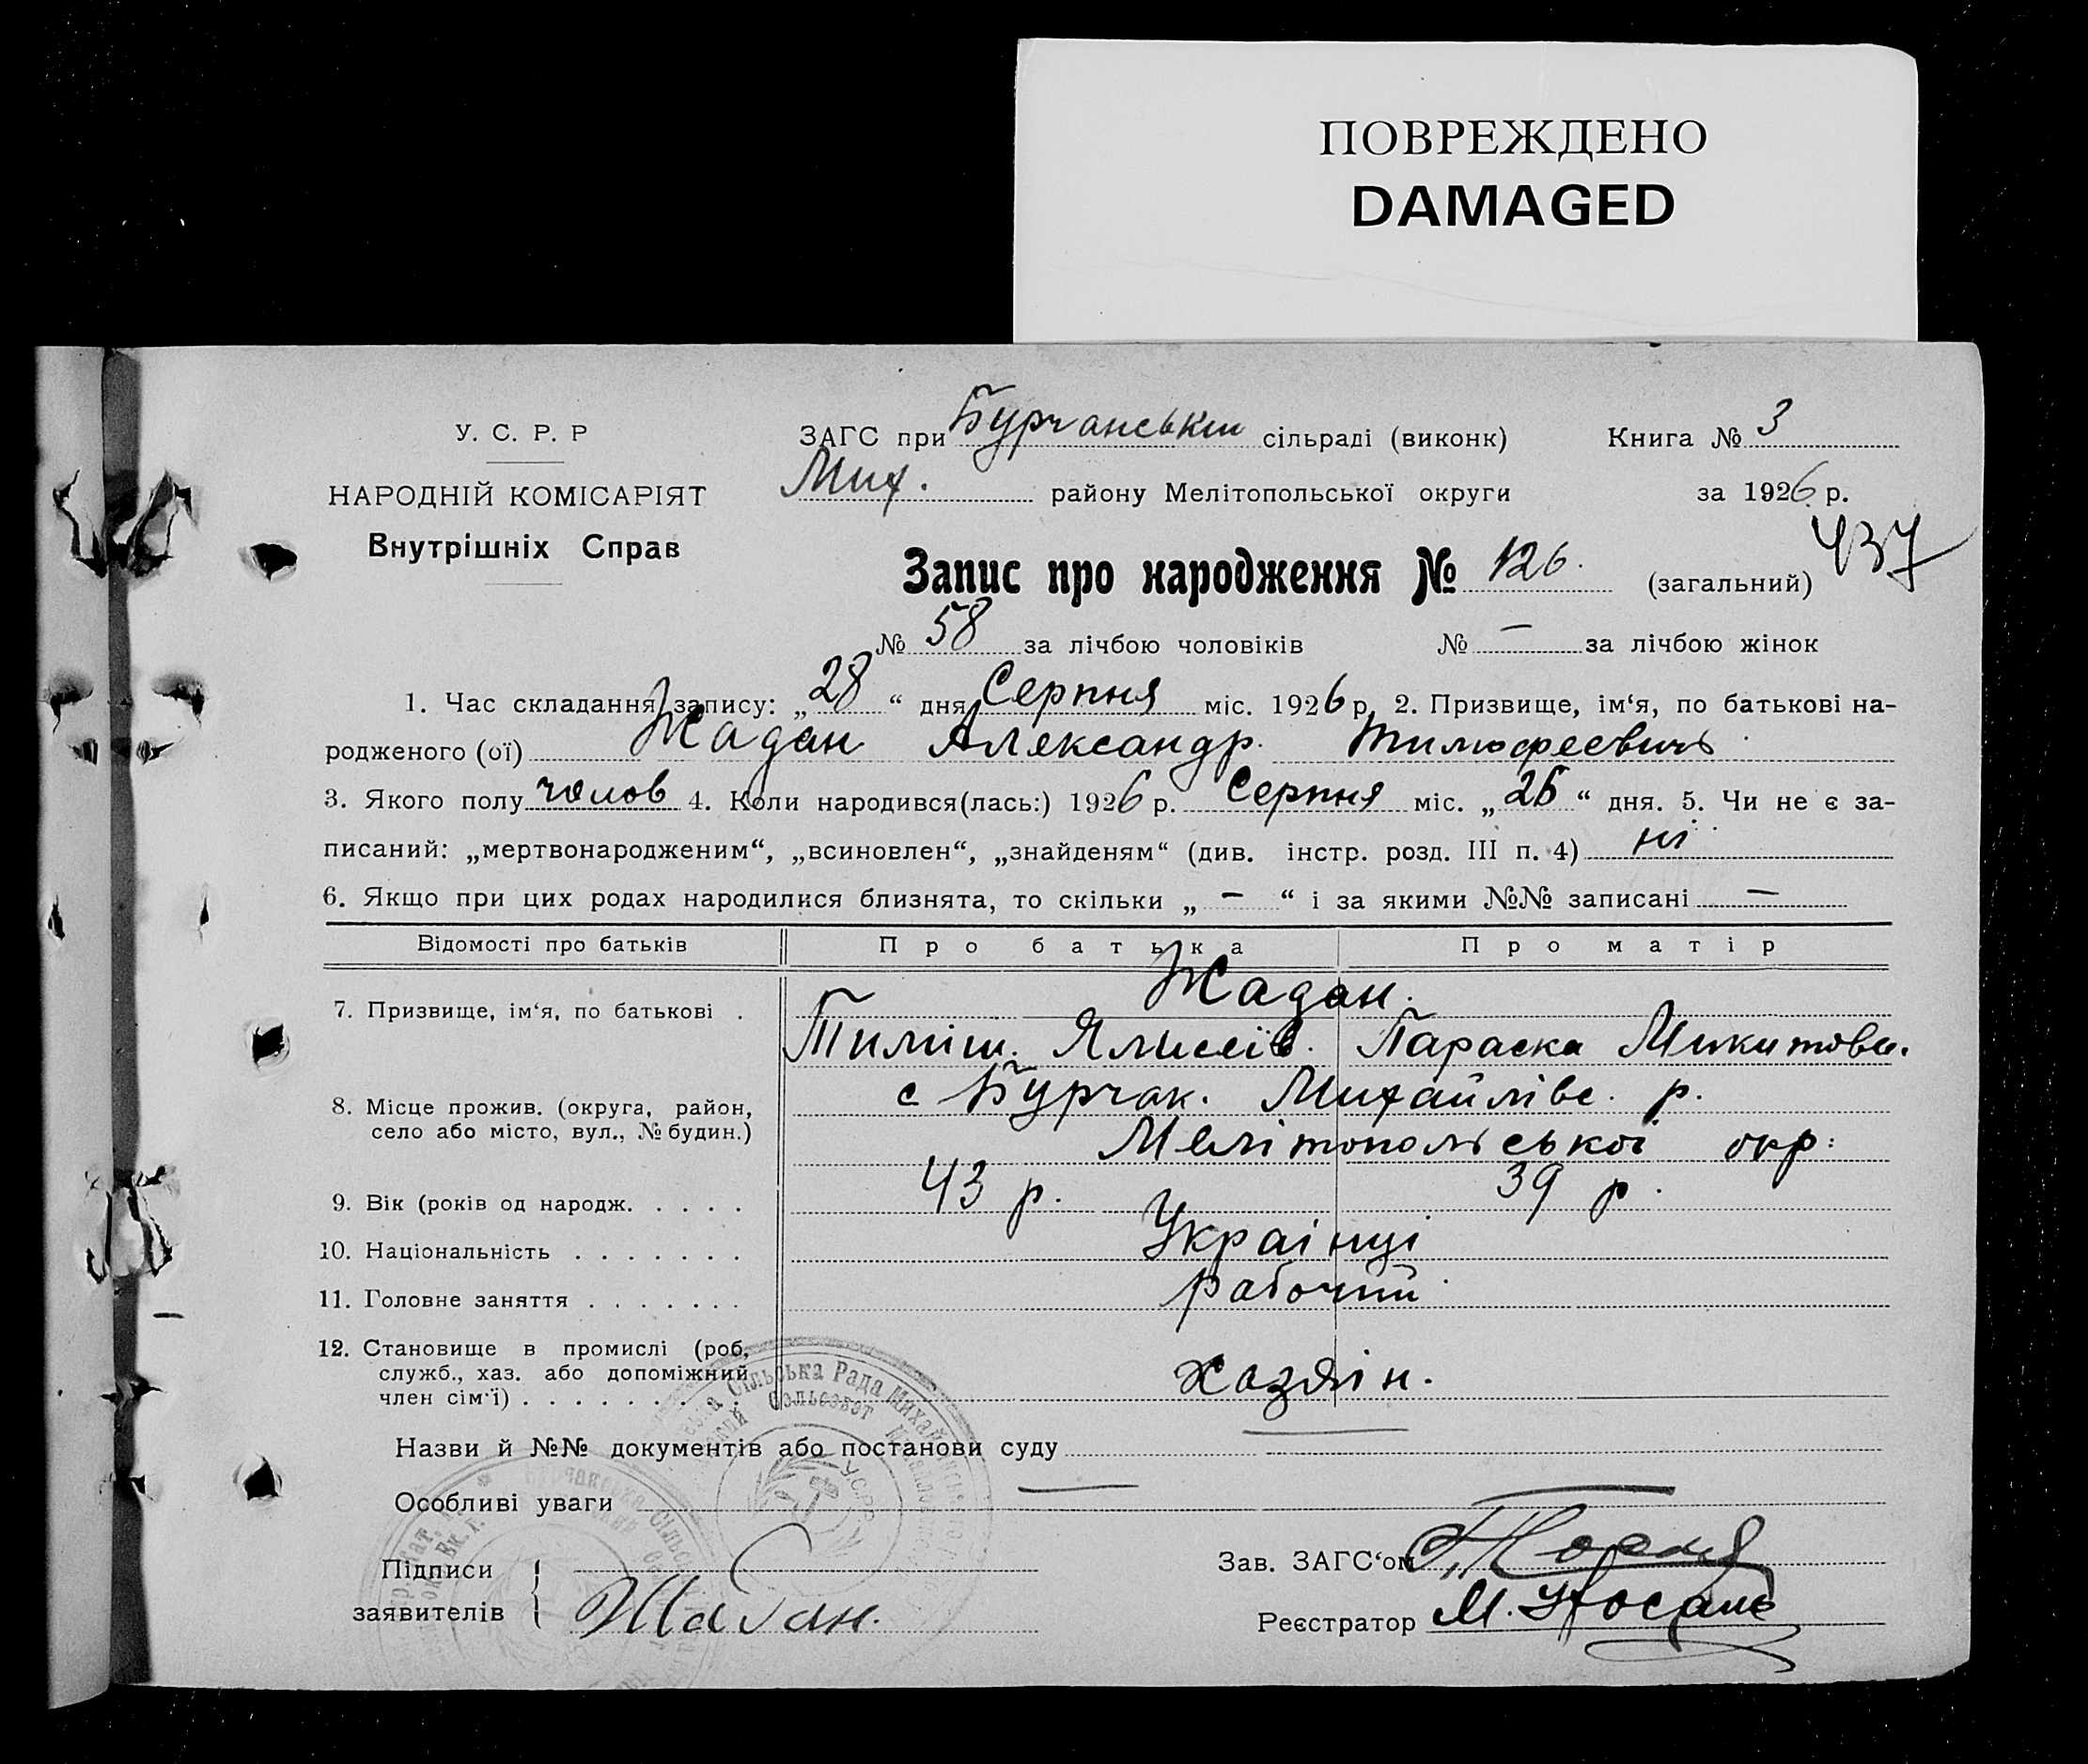 ПОВРЕЖДЕНО
DAMAGED
У. С. Р. Р
НАРОДНІЙ КОМІСАРІЯТ
Внутрішніх Справ
ЗАГС при Бурчанськім сільраді (виконк) Книга № 3
Мих. району Мелітопольської округи за 1926 р.
437
Запис про народження № 126. (загальний)
№ 58 за лічбою чоловіків № — за лічбою жінок
1. Час складання запису: „28“ дня Серпня міс. 1926 р. 2. Призвище, ім‘я, по батькові на-
родженого (ої) Жадан Александр. Тимофеевичь
3. Якого полу чолов 4. Коли народився(лась:) 1926 р. Серпня міс. „26“ дня. 5. Чи не є за-
писаний: „мертвонародженим“, „всиновлен“, „знайденям“ (див. інстр. розд. III п. 4) ні
6. Якщо при цих родах народилися близнята, то скільки „ — “ і за якими №№ записані —
Відомості про батьків Про батька Про матір
Жадан.
7. Призвище, ім‘я, по батькові . Тиміш. Параска Микитова.
8. Місце прожив. (округа, район, с Бурчак. Михайлівс. р.
село або місто, вул., № будин.) Мелітопольської окр:
9. Вік (років од народж. . . . . 43 р. 39 р.
10. Національність . . . . . . . Українці
11. Головне заняття . . . . . . . рабочий
12. Становище в промислі (роб,
служб., хаз. або допоміжний хазяін.
член сім‘ї) . . . . . . . .
Назви й №№ документів або постанови суду
Особливі уваги
Підписи
заявителів Жадан.
Зав. ЗАГС‘ом
Реєстратор М.
Сільська Рада Михайлівського
Сельсовет
У.С.Р.Р.